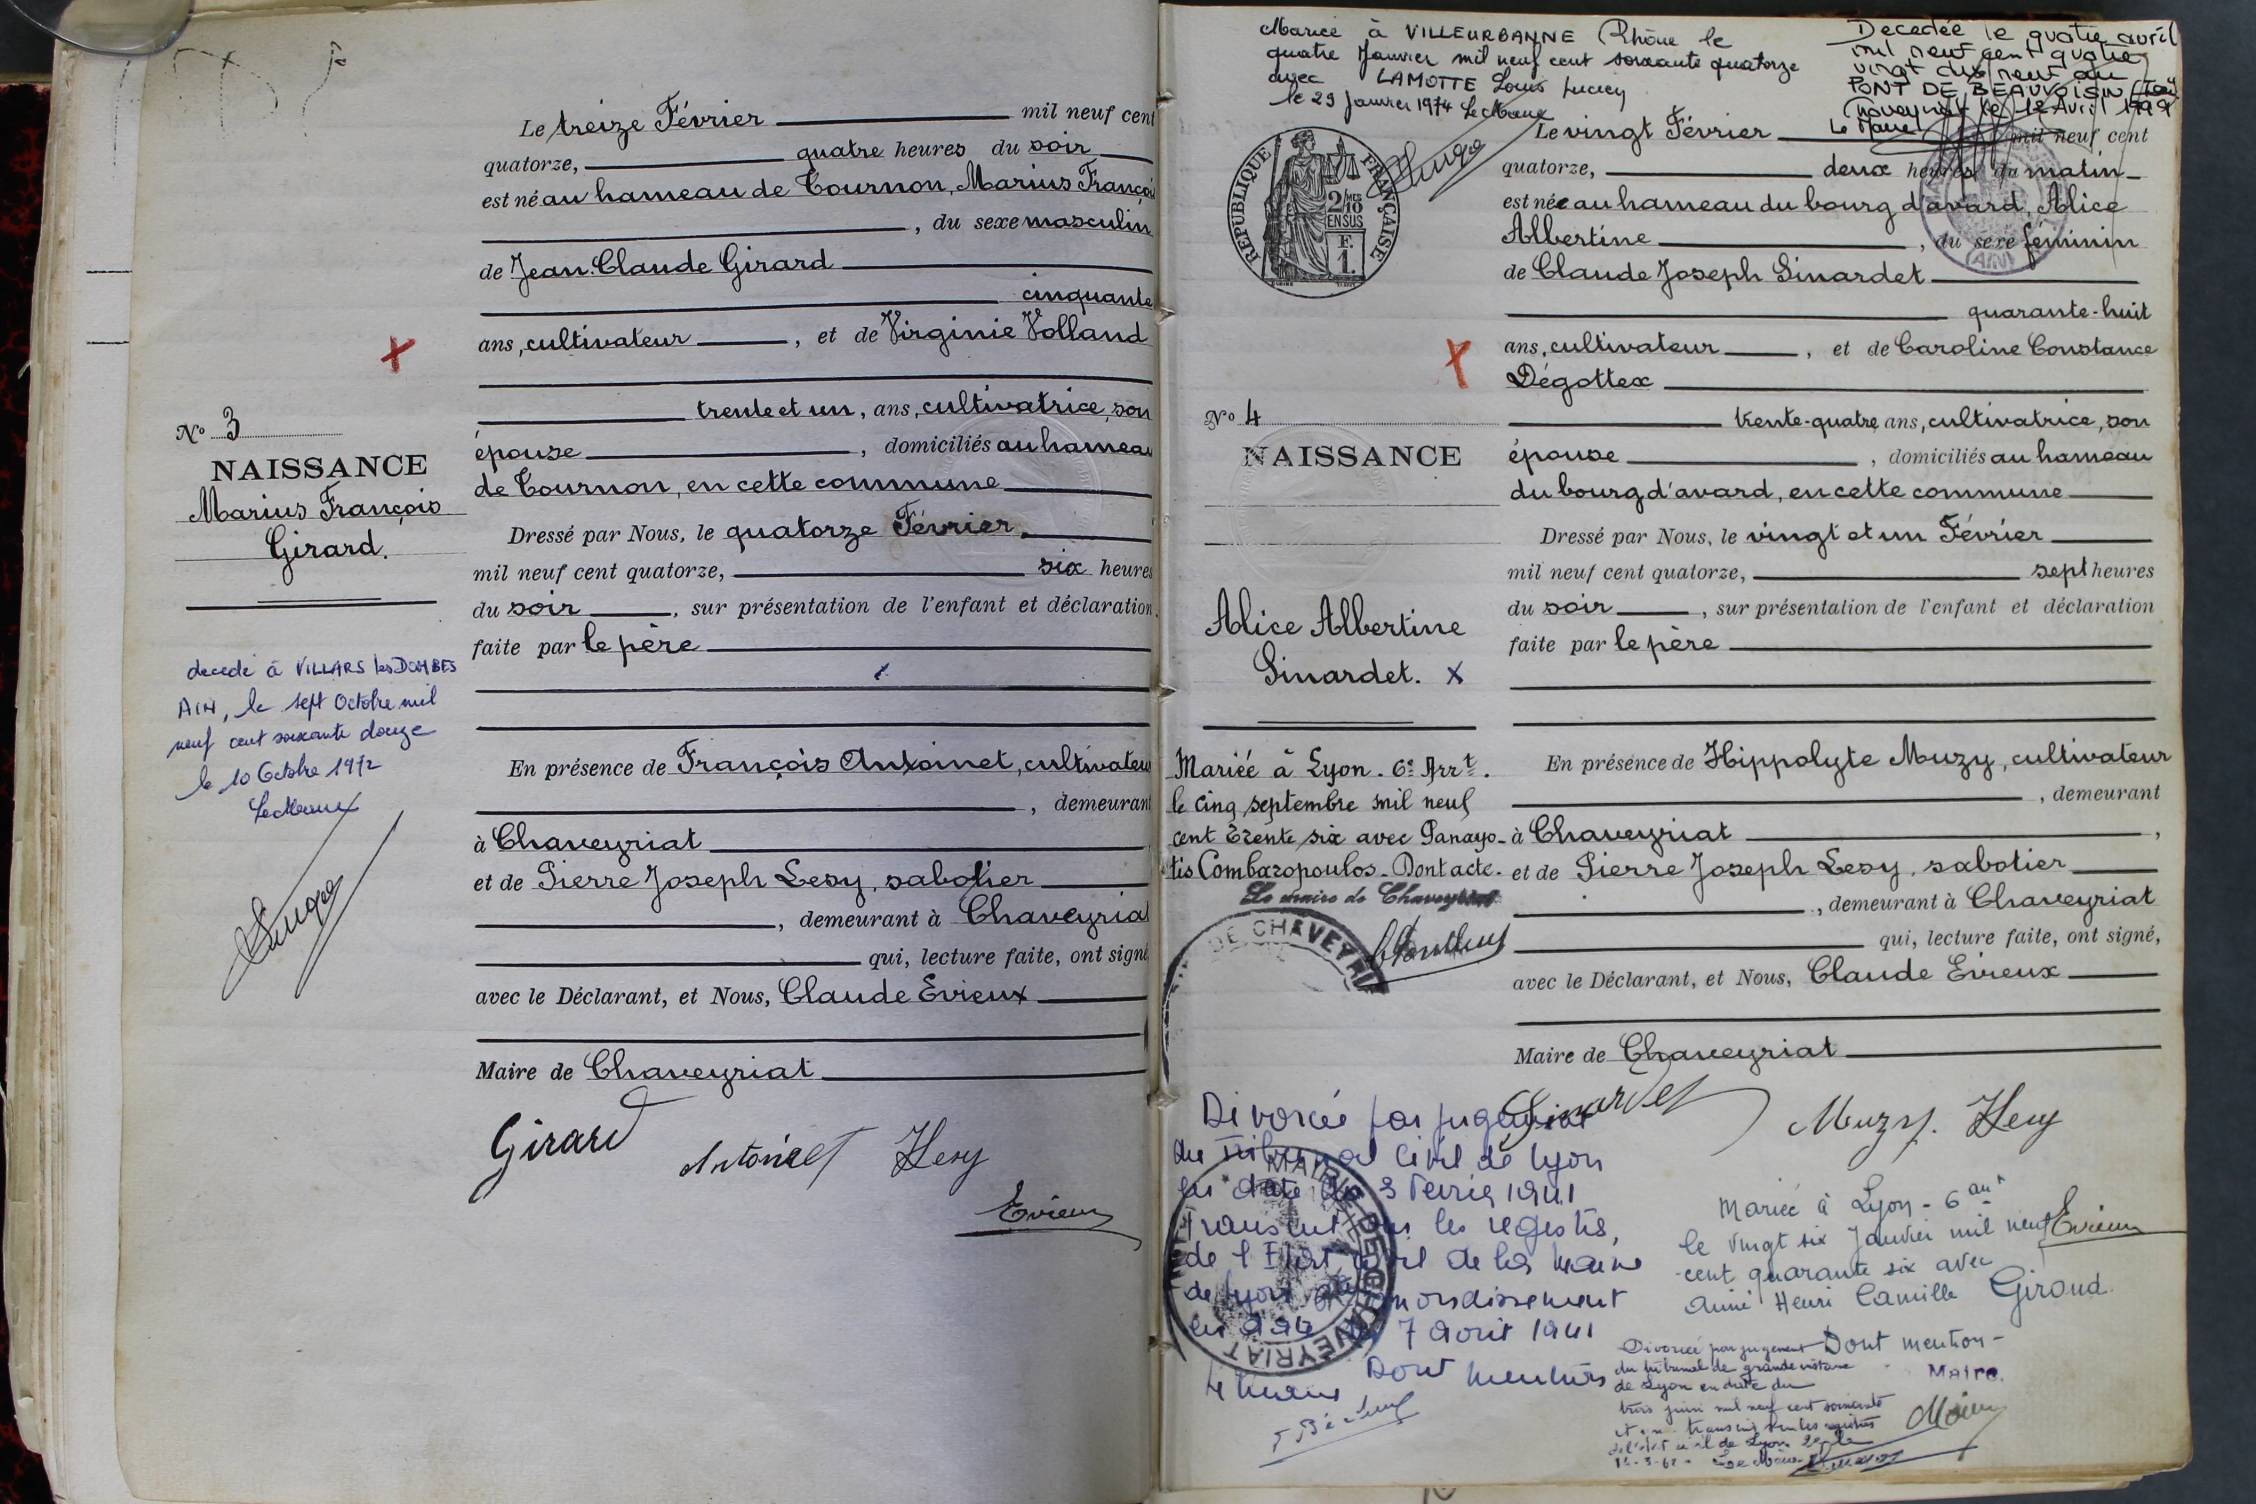 Le treize Février mil neuf cent
quatorze, quatre heures du soir
est né au hameau de Tournon, Marius François
, du sexe masculin
de Jean Claude Girard
cinquante
ans, cultivateur , et de Virginie Volland
trente et un, ans, cultivatrice, son
épouse , domiciliés au hameau
de Tournon, en cette commune
Dressé par Nous, le quatorze Février
mil neuf cent quatorze, six heures
du soir , sur présentation de l'enfant et déclaration
faite par le père
En présence de François Antoinet, cultivateur
, demeurant
à Chaveyriat
et de Pierre Joseph Lesy, sabotier
, demeurant à Chaveyriat
qui, lecture faite, ont signé
avec le Déclarant, et Nous, Claude Evieux
Maire de Chaveyriat
Girard Antoinet Lesy
Evieux
No 3
NAISSANCE
Marius François
Girard.
decedé à VILLARS les DOMBES
AIN, le sept Octobre mil
neuf cent soixante douze
le 10 Octobre 1972
Le Maire
Mariée à VILLEURBANNE Rhône le
quatre Janvier mil neuf cent soixante quatorze
avec LAMOTTE Louis Lucien
le 29 Janvier 1974 Le Maire
Decedée le quatre avril
mil neuf cent quatre
vingt dix neuf au
PONT DE BEAUVOISIN
Chaveyriat le 12 Avril 1999
Le Maire
REPUBLIQUE FRANÇAISE
2/10
EN SUS
F.
1.
(AIN)
Le vingt Février mil neuf cent
quatorze, deux heures du matin
est née au hameau du bourg d'avard, Alice
Albertine , du sexe féminin
de Claude Joseph Sinardet
quarante-huit
ans, cultivateur , et de Caroline Constance
Dégottex
trente-quatre ans, cultivatrice, son
épouse , domiciliés au hameau
du bourg d'avard, en cette commune
Dressé par Nous, le vingt et un Février
mil neuf cent quatorze, sept heures
du soir , sur présentation de l'enfant et déclaration
faite par le père
En présence de Hippolyte Muzy, cultivateur
, demeurant
à Chaveyriat ,
et de Pierre Joseph Lesy, sabotier
, demeurant à Chaveyriat
qui, lecture faite, ont signé,
avec le Déclarant, et Nous, Claude Evieux
Maire de Chaveyriat
Sinardet Muzy. Lesy
Evieux
No 4
NAISSANCE
Alice Albertine
Sinardet. x
Mariée à Lyon. 6e Arrt.
le cinq septembre mil neuf
cent trente six avec Panayo-
tis Combaropoulos. Dont acte.
Le maire de Chaveyriat
DE CHAVEYRIAT
Divorcée par jugement
du Tribunal Civil de Lyon
en date du 3 Fevrier 1941
Transcrit sur les registres
de l'Etat civil de la Mairie
de Lyon arrondissement
en date du 7 Aout 1941
Dont mention
Le Maire
MAIRIE DE CHAVEYRIAT
Mariée à Lyon - 6
le vingt six Janvier mil neuf
cent quarante six avec
Aimé Henri Camille Giroud.
Dont mention -
Maire.
Divorcée par jugement
du tribunal de grande instance
de Lyon en date du
trois juin mil neuf cent soixante
et un transcrit sur les registres
de l'état civil de Lyon
Le Maire